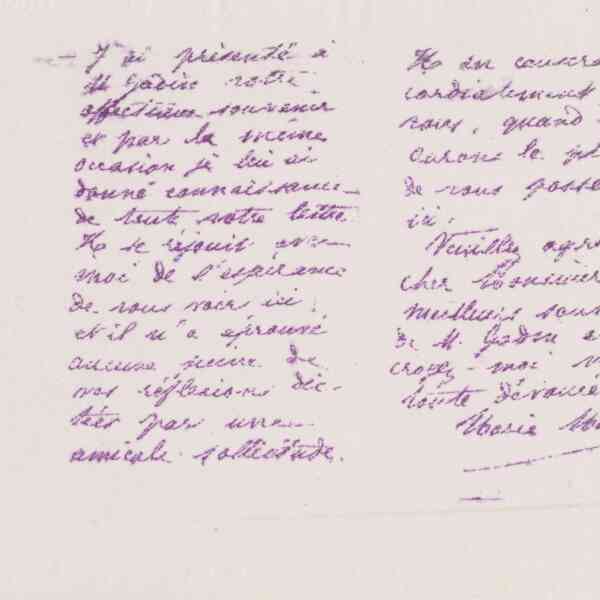 J'ai présenté à
M. Godin votre
affectueux souvenir
et par la même
occasion je lui ai
donné connaissance
de toute votre lettre.
Il se réjouit avec
moi de l'espérance
de vous voir ici,
et il n'a éprouvé
aucune peine de
vos réflexions dic-
tées par une
amicale sollicitude.
Il en causera
cordialement
vous, quand
aurons le
de vous
ici.
Veuillez
cher Monsieur
meilleurs
de M. Godin
croyez-moi
toute dévouée
Marie